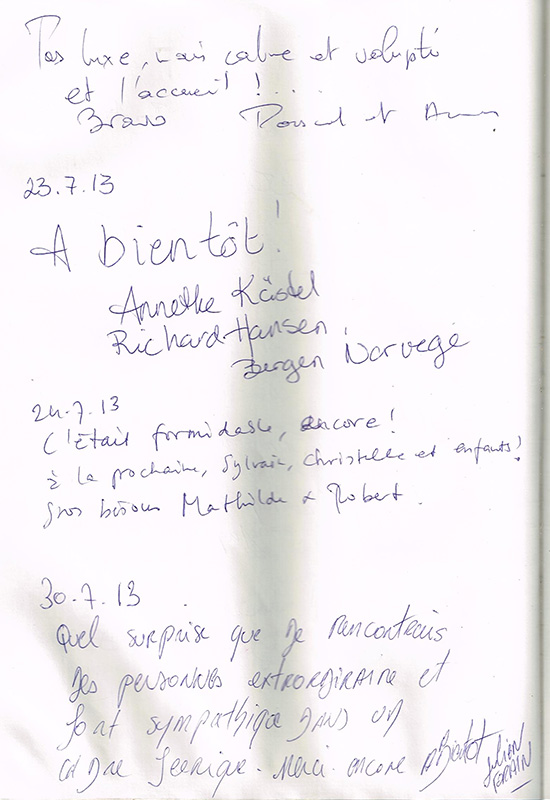 Pas luxe, mais calme et volupté
et l'accueil!...
Bravo et
23.7.13
A bientôt!
Annetke Kästel
Richard Hansen
Bergen Norvege
24.7.13
C'était formidable, encore!
à la prochaine, Sylvain, Christelle et enfants!
gros bisous Mathilde & Robert.
30.7.13
Quel surprise que de rencontrais
des personnes extrordiraine et
font sympathique dans un
cadre féerique. Merci encore A Bientot
Julien